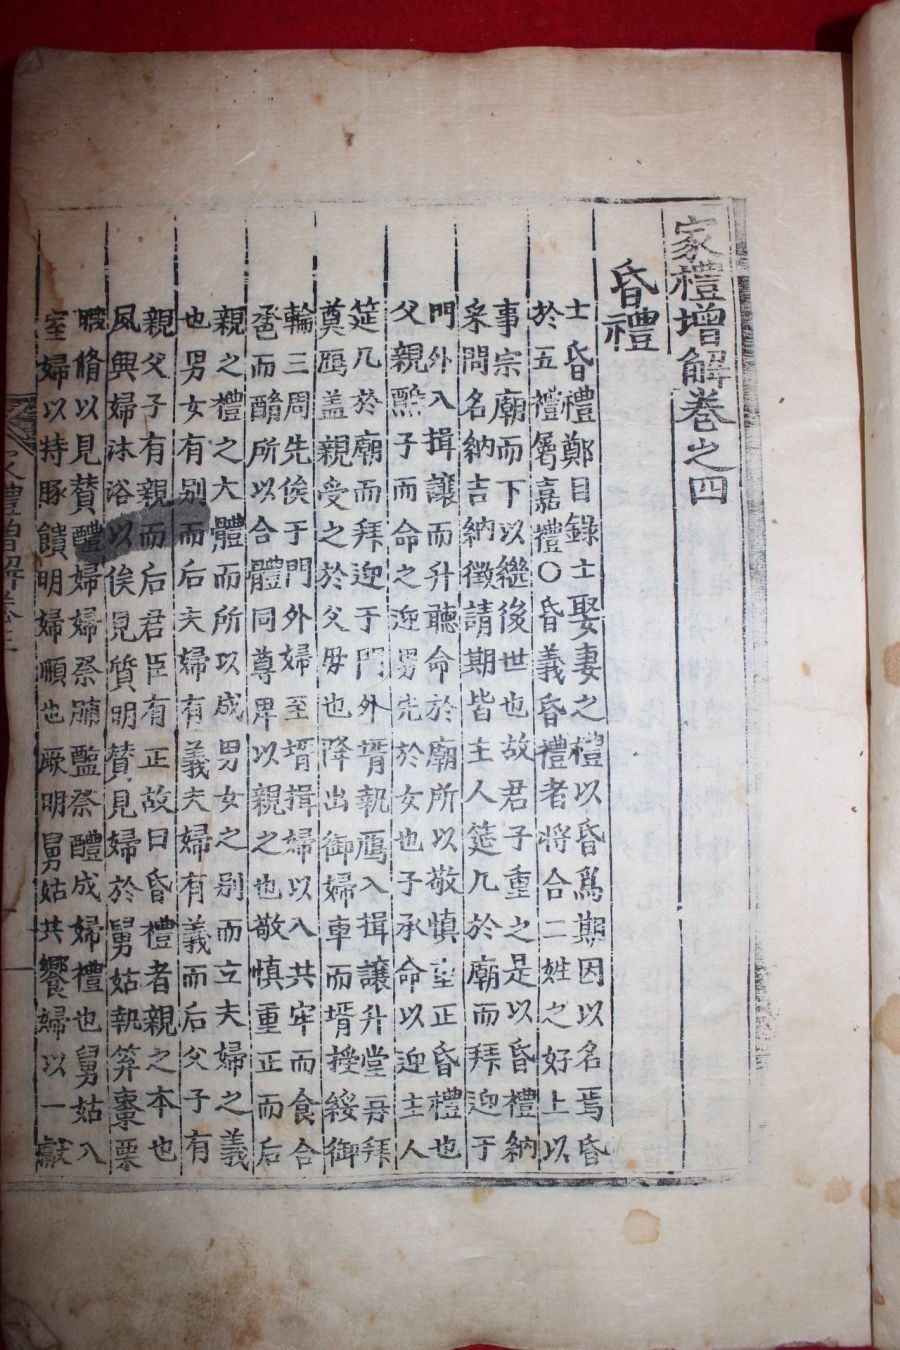 家禮增解卷之四
昏禮
士昏禮鄭目錄士娶妻之禮以昏爲期因以名焉昏
於五禮屬嘉禮○昏義昏禮者將合二姓之好上以
事宗廟而下以繼後世也故君子重之是以昏禮納
采問名納吉納徵請期皆主人筵几於廟而拜迎于
門外入揖讓而升聽命於廟所以敬慎重正昏禮也
父親醮子而命之迎男先於女也子承命以迎主人
筵几於廟而拜迎于門外壻執鴈入揖讓升堂再拜
奠鴈盖親受之於父母也降出御婦車而壻授綏御
輪三周先俟于門外婦至壻揖婦以入共牢而食合
巹而酳所以合體同尊卑以親之也敬慎重正而后
親之禮之大體而所以成男女之别而立夫婦之義
也男女有别而后夫婦有義夫婦有義而后父子有
親父子有親而后君臣有正故曰昏禮者親之本也
夙興婦沐浴以俟見質明賛見婦於舅姑執笲棗栗
腶脩以見賛醴婦婦祭脯醢祭醴成婦禮也舅姑入
室婦以持豚饋明婦順也厥明舅姑共饗婦以一獻
家禮增解卷